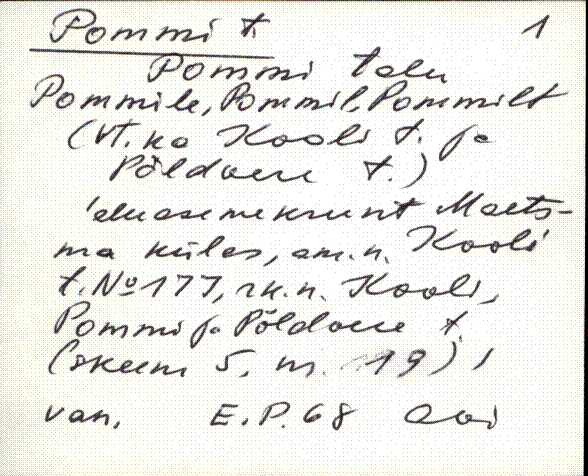 Pommi t. 1
Pommi talu
Pommile, Pommil, Pommilt
(vt. ka Kooli t. ja
Põldoue t.)
'eluasemekrunt Maets-
ma külas, am.n. Kooli
t. № 177, rk.n. Kooli,
Pommi ja Põldoue t.
(skeem 5, nr. 19)'
van. E.P. 68